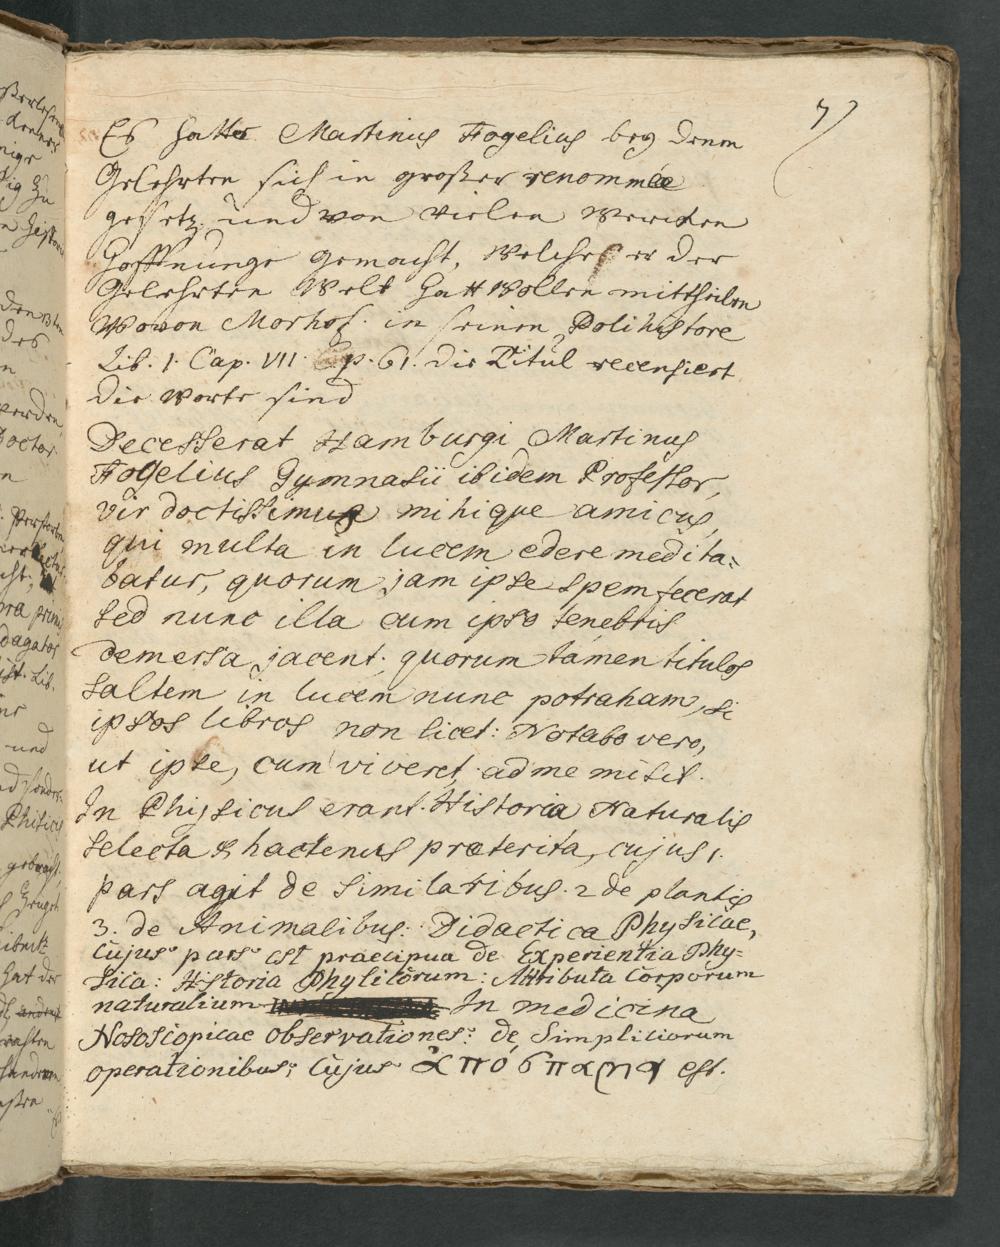 7
Es hatte Martinus Fogelius bey denen
Gelehrten sich in großer renommée
gesetz, und von vielen Wercken
Hoffnunge gemacht, Welche er der
Gelehrten Welt hatt wollen mittheilen
Wovon Morhof. in seinen Polihistore
Lib. 1. Cap. VII. p. 61. die Titul recensiert
die Worte sind
Decesserat Hamburgi Martinus
Fogelius Gymnasii ibidem Professor,
vir doctissimus mihique amicus,
qui multa in lucem edere medita=
batur, quorum jam ipse spem fecerat
sed nunc illa cum ipso tenebris
demersa jacent. quorum tamen titulos
saltem in lucem nunc potraham, si
ipsos libros non licet: Notabo vero,
ut ipse, cum viveret, ad me misit.
In Physicus erant. Historia Naturalis
selecta & hactenus præterita, cujus 1.
pars agit de similaribus. 2 de plantis
3. de Animalibus: Didactica Physicae,
cujus pars est praecipua de Experientia Phy=
sica: Historia Physicorum: Attributa Corporum
naturalium In medicina
Nososcopicae observationes: de Simpliciorum
operationibus; cujus ἀπόσπασμα est.